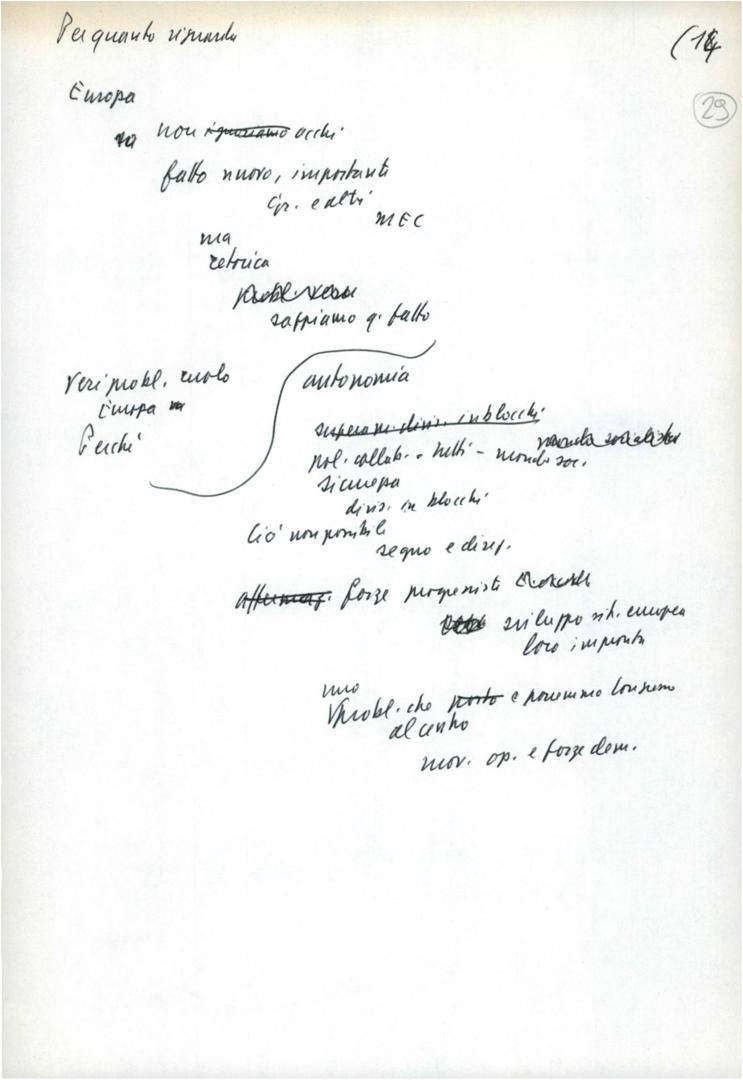 Per quanto riguarda
(14
29
Europa
non ignoriamo occhi
fatto nuovo, importante
e altri
MEC
ma
retorica
probl. veri
sappiamo q. fatto
Veri probl. ruolo
Europa
Perché
autonomia
superam. divis. in blocchi
pol. collab. a tutti - mondo soc.
mondo socialista
sicurezza
divis. in blocchi
Ciò non possibile
segno e
affermaz. forze progressiste
sviluppo sit. europea
loro impronta
uno
probl. che posto e porremo
al centro
mov. op. e forze dem.